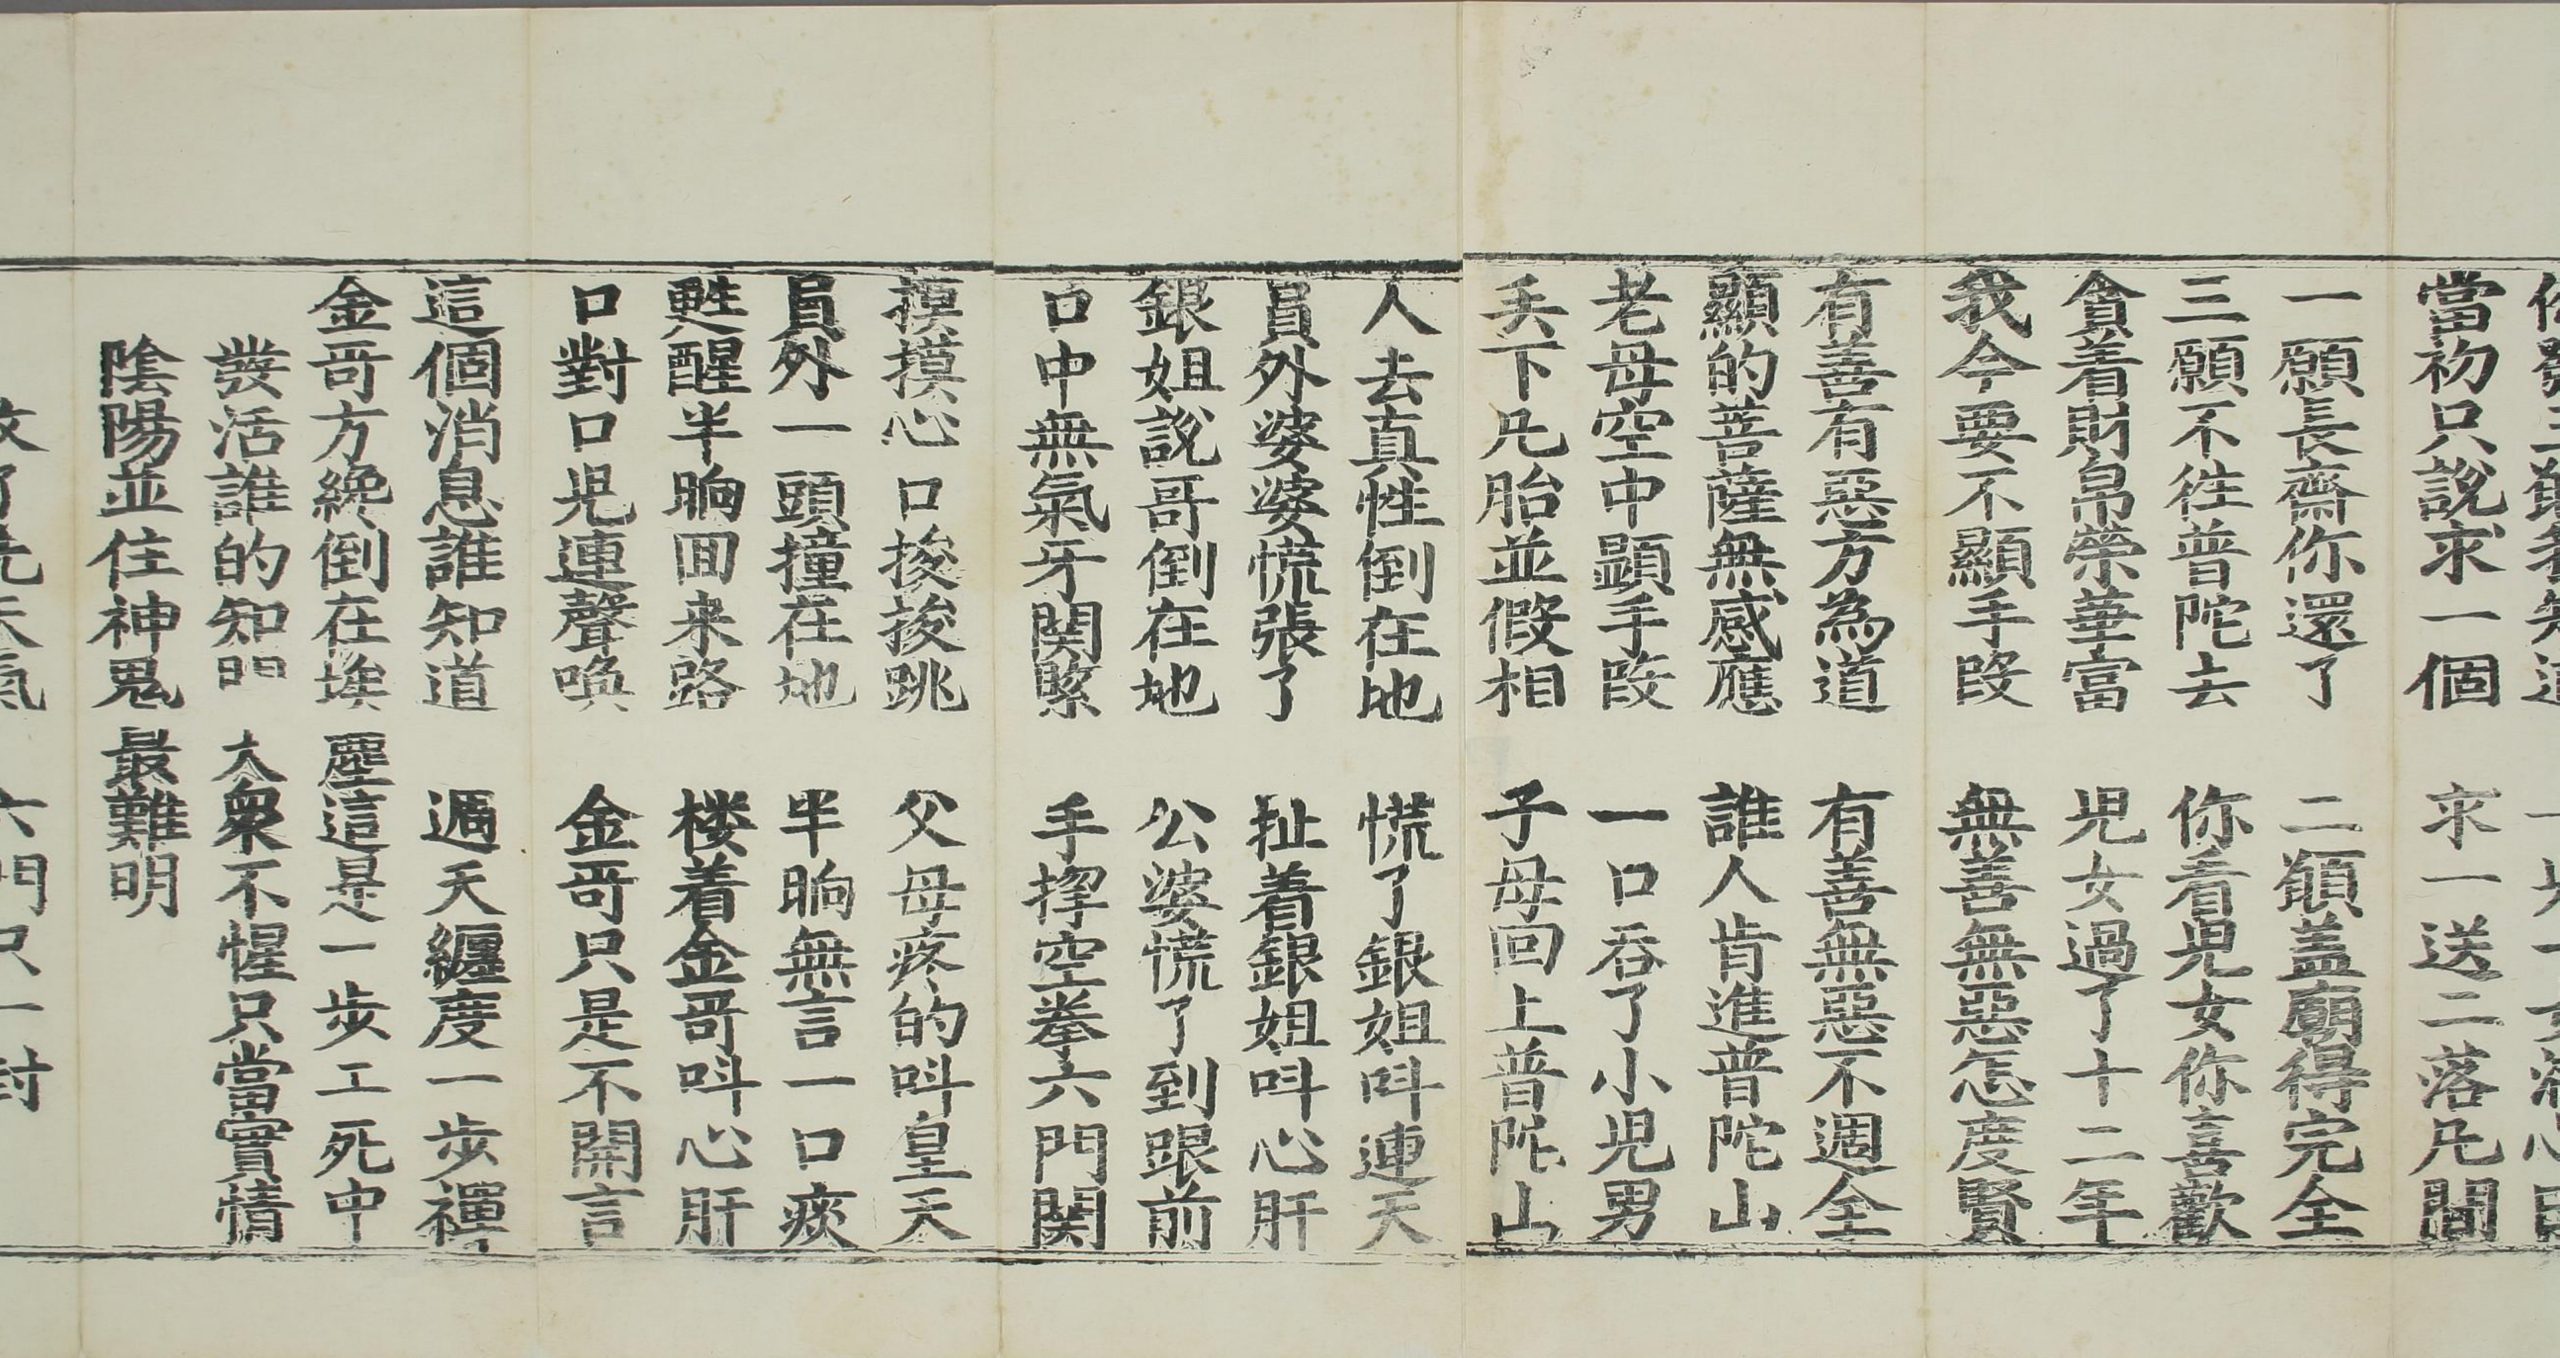 當初只說求一個　求一送二落凡間
一願長齋你還了　二願盖廟得完全
三願不徃普陀去　你看児女你喜歡
貪着財帛榮華富　児女過了十二年
我今要不顯手段　無善無惡怎度賢
有善有惡方為道　有善無惡不週全
顯的菩薩無感應　誰人肯進普陀山
老母空中顕手段　一口吞了小児男
丢下凡胎並假相　子母回上普陀山
人去真性倒在地　慌了銀姐呌連天
員外婆婆慌張了　扯着銀姐呌心肝
銀姐說哥倒在地　公婆慌了到跟前
口中無氣牙関緊　手揑空拳六門関
摸摸心口捘捘跳　父母疼的呌皇天
員外一頭撞在地　半晌無言一口痰
甦醒半晌囬来路　楼着金哥呌心肝
口對口児連聲喚　金哥只是不開言
這個消息誰知道　週天纏度一步禪
金哥方纔倒在埃塵這是一步工死中
發活誰的知門大衆不惺只當實情
陰陽並住神鬼最難明